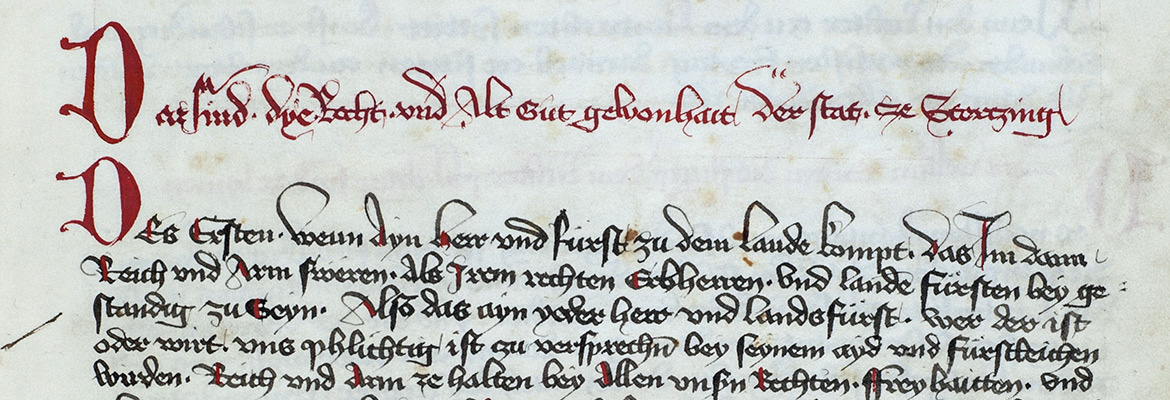 Das sind. dye Recht. vnd Alt Gut gewonhait der stat. ze Stertzing
DEs Ersten. wenn Ayn herr vnd fürst zu dem lannde kompt. das Im dann
Reich vnd Arm sweren. Als Irem rechten Erbherren. vnd landes fürsten bey ge
standig zu Seyn. Also das ayn yeder herr vnd landsfürst. wer der ist
oder wirt. vns phlichtig ist zu versprechn̄ bey seynem ayd vnd fürstleichen
wirden. Reich vnd Arm ze halten bey Allen vnsn̄ Rechten. ffreyhaitten. vnd